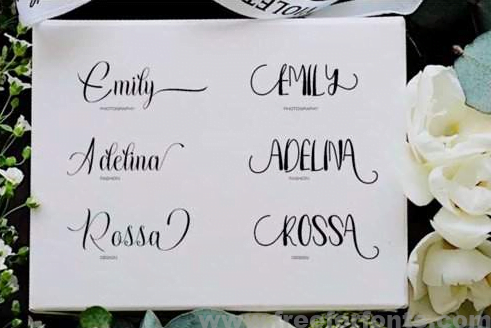 Emily
PHOTOGRAPHY
EMILY
PHOTOGRAPHY
Adelina
FASHION
ADELINA
FASHION
Rossa
DESIGN
ROSSA
DESIGN